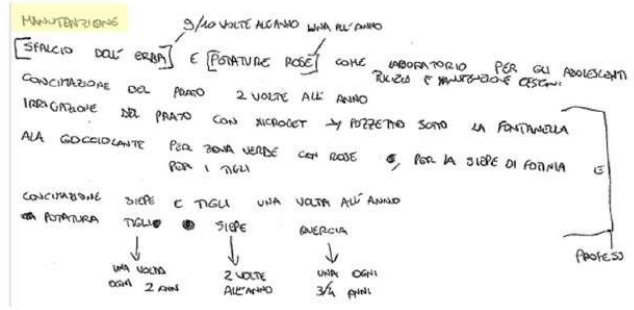 MANUTENZIONE
9/10 VOLTE ALL'ANNO UNA ALL'ANNO
[SFALCIO DELL'ERBA] E [POTATURE ROSE] COME LABORATORIO PER GLI ADOLESCENTI
PULIZIA E MANUTENZIONE CESTINI
CONCIMAZIONE DEL PRATO 2 VOLTE ALL'ANNO
IRRIGAZIONE DEL PRATO CON MICROGET → POZZETTO SOTTO LA FONTANELLA
ALA GOCCIOLANTE PER ZONA VERDE CON ROSE E PER LA SIEPE DI FOTINIA E
PER I TIGLI
CONCIMAZIONE SIEPE E TIGLI UNA VOLTA ALL'ANNO
POTATURA TIGLI SIEPE QUERCIA
UNA VOLTA 2 VOLTE UNA OGNI
OGNI 2 ANNI ALL'ANNO 3/4 ANNI
PROFESS